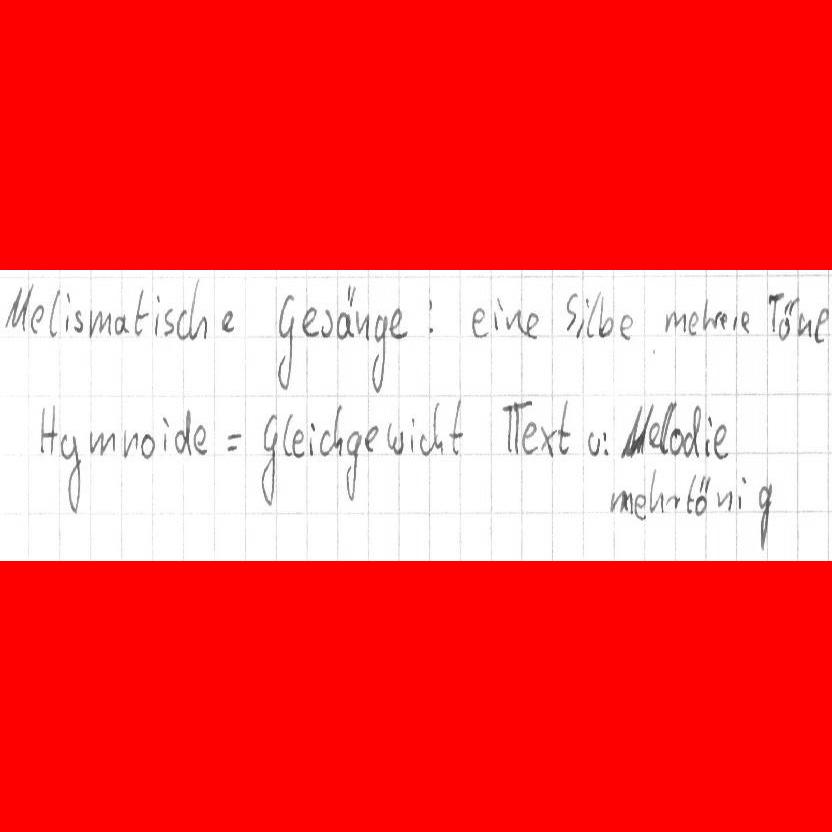 Melismatische Gesänge: eine Silbe mehrere Töne
Hymnoide = Gleichgewicht Text u. Melodie
mehrtönig